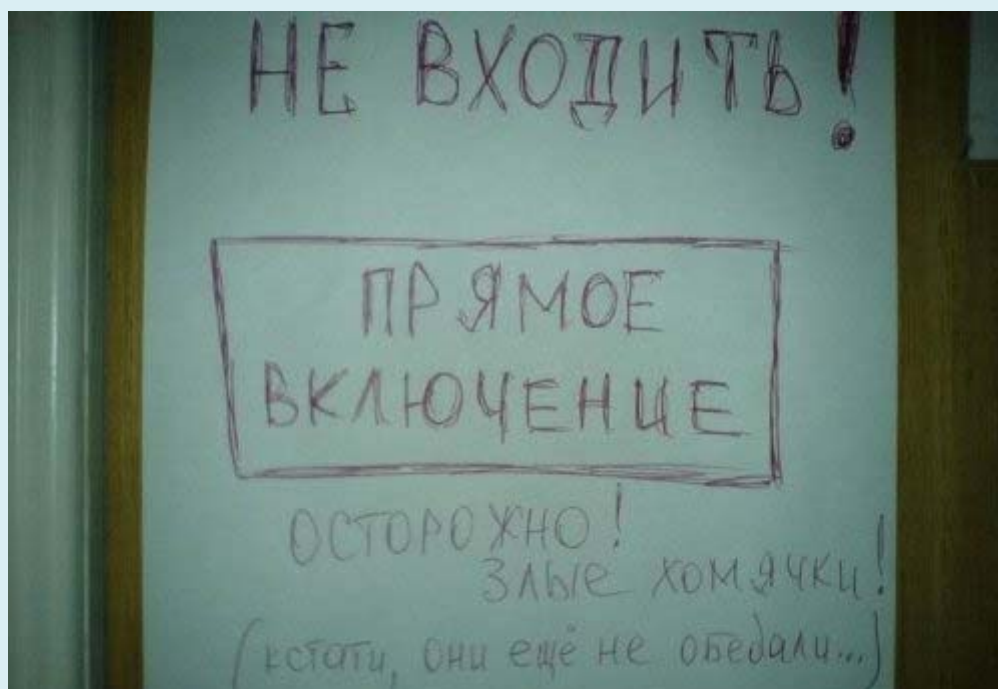 НЕ ВХОДИТЬ!
ПРЯМОЕ
ВКЛЮЧЕНИЕ
ОСТОРОЖНО!
ЗЛЫЕ ХОМЯЧКИ!
(кстати, они ещё не обедали...)